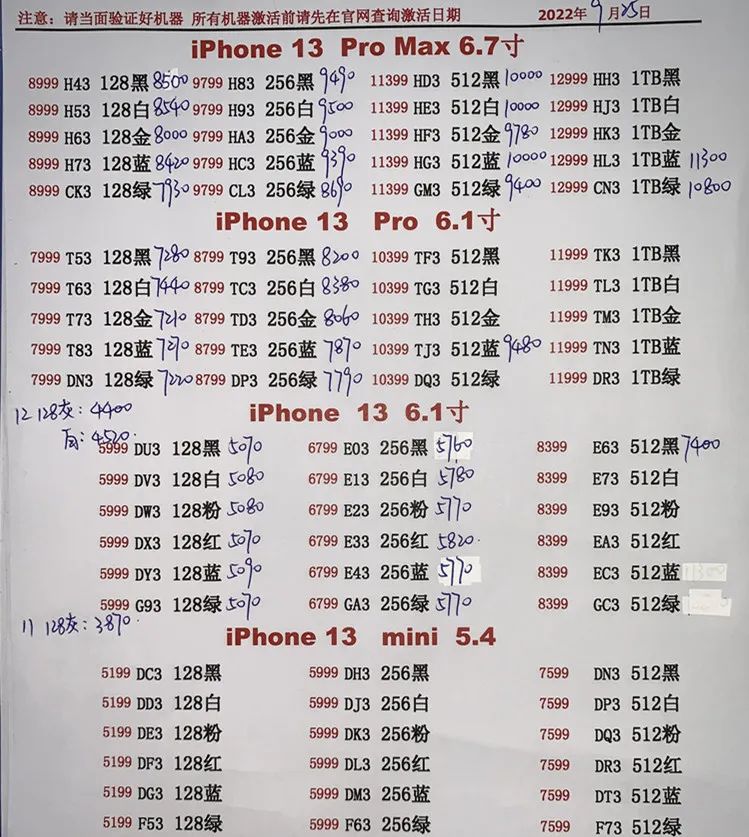 注意：请当面验证好机器 所有机器激活前请先在官网查询激活日期 2022年9月25日
iPhone 13 Pro Max 6.7寸
8999 H43 128黑 8500 9799 H83 256黑 9490 11399 HD3 512黑 10000 12999 HH3 1TB黑
8999 H53 128白 8540 9799 H93 256白 9500 11399 HE3 512白 10000 12999 HJ3 1TB白
8999 H63 128金 8000 9799 HA3 256金 9000 11399 HF3 512金 9780 12999 HK3 1TB金
8999 H73 128蓝 8420 9799 HC3 256蓝 9390 11399 HG3 512蓝 10000 12999 HL3 1TB蓝 11300
8999 CK3 128绿 7930 9799 CL3 256绿 8690 11399 GM3 512绿 9400 12999 CN3 1TB绿 10800
iPhone 13 Pro 6.1寸
7999 T53 128黑 7280 8799 T93 256黑 8200 10399 TF3 512黑 11999 TK3 1TB黑
7999 T63 128白 7440 8799 TC3 256白 8380 10399 TG3 512白 11999 TL3 1TB白
7999 T73 128金 7210 8799 TD3 256金 8060 10399 TH3 512金 11999 TM3 1TB金
7999 T83 128蓝 7270 8799 TE3 256蓝 7870 10399 TJ3 512蓝 9480 11999 TN3 1TB蓝
7999 DN3 128绿 7220 8799 DP3 256绿 7790 10399 DQ3 512绿 11999 DR3 1TB绿
12 128灰：4400
iPhone 13 6.1寸
白：4520
5999 DU3 128黑 5070 6799 E03 256黑 5760 8399 E63 512黑 7400
5999 DV3 128白 5080 6799 E13 256白 5780 8399 E73 512白
5999 DW3 128粉 5080 6799 E23 256粉 5770 8399 E93 512粉
5999 DX3 128红 5070 6799 E33 256红 5820 8399 EA3 512红
5999 DY3 128蓝 5090 6799 E43 256蓝 5770 8399 EC3 512蓝
5999 G93 128绿 5070 6799 GA3 256绿 5770 8399 GC3 512绿
11 128灰：3870
iPhone 13 mini 5.4
5199 DC3 128黑 5999 DH3 256黑 7599 DN3 512黑
5199 DD3 128白 5999 DJ3 256白 7599 DP3 512白
5199 DE3 128粉 5999 DK3 256粉 7599 DQ3 512粉
5199 DF3 128红 5999 DL3 256红 7599 DR3 512红
5199 DG3 128蓝 5999 DM3 256蓝 7599 DT3 512蓝
5199 F53 128绿 5999 F63 256绿 7599 F73 512绿